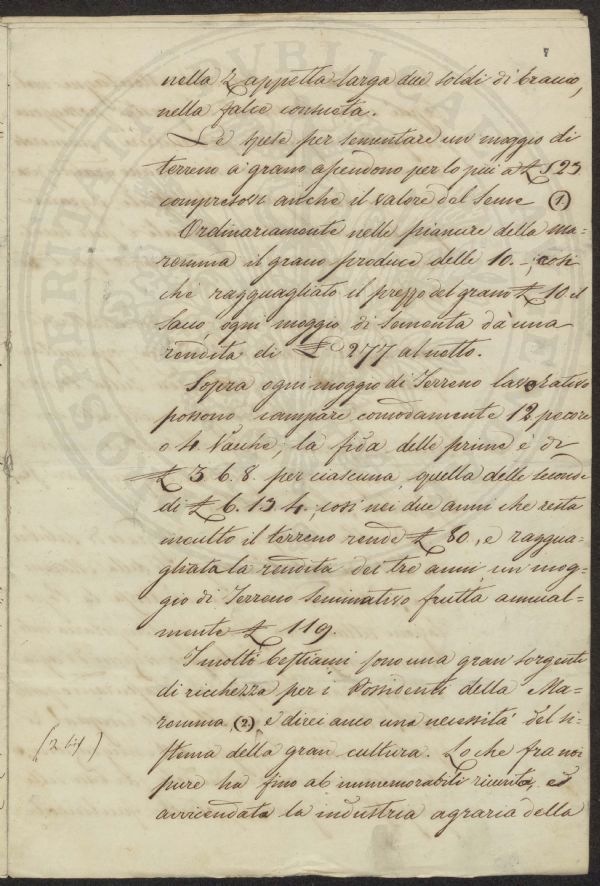 nella Zappetta larga due soldi di braccio,
nella falce consueta.
Le spese per sementare un moggio di
terreno a grano ascendono per lo più a £ 123
compresovi anche il valore del seme (1)
Ordinariamente nelle pianure della ma=
remma il grano produce delle 10.-, cosi
che ragguagliato il prezzo del grano £ 10 il
sacco, ogni moggio di sementa dà una
rendita di £ 277 al netto.
Sopra ogni moggio di Terreno lavorativo
possono campare comodamente 12 pecore
o 4 Vacche; la fida delle prime è di
£ 3 6. 8. per ciascuna, quella delle seconde
di £ 6. 13 4., cosi nei due anni che resta
inculto il terreno rende £ 80., e raggua=
gliata la rendita dei tre anni, un mog=
gio di Terreno Seminativo frutta annual=
mente £ 119.
I molti bestiami sono una gran sorgente
di ricchezza per i Possidenti della Ma=
remma, (2) e direi anco una necessità del si=
stema della gran cultura. Lo che fra noi
pure ha fino ab immemorabili riunita, ed
avvicendata la industria agraria della
(2 bis)
VBLICAE
PROSPERITATI